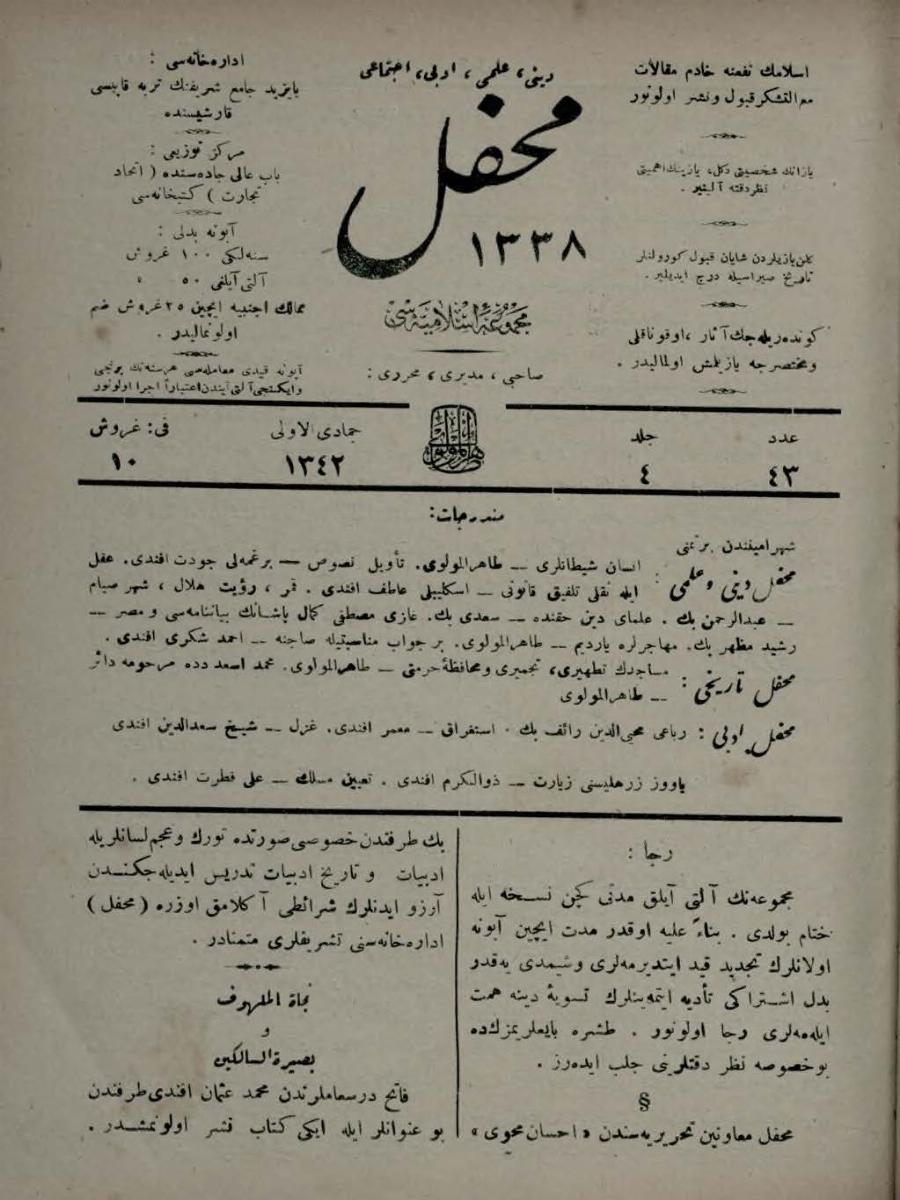 اسلامك نفعنه خادم مقالات
مع التشكر قبول ونشر اولونور
يازانك شخصيتى دكل، يازينك اهميتى
نظر دقته آلينير .
كلن يازيلردن شايان قبول كورولنلر
تاريخ صيراسيله درج ايديلير .
كوندهريله جك آثار ، اوقوناقلى
ومختصرجه يازيلمش اولماليدر .
دينى ، علمى ، ادبى ، اجتماعى
محفل
١٣٣٨
مجموعهٔ اسلاميه سى
صاحبى ، مديرى ، محررى :
اداره خانه سى :
بايزيد جامع شريفنك تربه قاپيسى
قارشيسنده
مركز توزيعى :
باب عالى جاده سنده ( اتحاد
تجارت ) كتبخانه سى
آبونه بدلى :
سنه لكى ١٠٠ غروش
آلتى آيلغى ٥٠ »
ممالك اجنبيه ايچين ٢٥ غروش ضم
اولونماليدر .
آبونه قيدى معامله سى هر سنه نك برنجى
وايكنجى آلتى آيندن اعتباراً اجرا اولونور
عدد
٤٣
جلد
٤
طاهر المولوى
جمادى الاولى
١٣٤٢
فى : غروش
١٠
مندرجات :
شهر امينندن بر تمنى
محفل دينى و علمى : انسان شيطانلرى — طاهر المولوى . تأويل نصوص — برغمه لى جودت افندى . عقل
ايله نقلى تلفيق قانونى — اسكليپلى عاطف افندى . قمر ، رؤيت هلال ، شهر صيام
— عبدالرحمن بك . علماى دين حقنده — سعدى بك . غازى مصطفى كمال پاشانك بياننامه سى و مصر —
رشيد مظهر بك . مهاجرلره يارديم — طاهر المولوى . بر جواب مناسبتيله صاجنه — احمد شكرى افندى .
محفل تاريخى : مساجدك تطهيرى ، تجميرى و محافظهٔ حرمتى — طاهر المولوى . محمد اسعد دده مرحومه دائر
— طاهر المولوى
محفل ادبى : رباعى محيى الدين رائف بك . استغراق — معمر افندى . غزل — شيخ سعدالدين افندى
ياووز زرهليسنى زيارت — ذوالكرم افندى . تعيين مسلك — على فطرت افندى .
رجا :
مجموعه نك آلتى آيلق مدتى كچن نسخه ايله
ختام بولدى . بناءً عليه اوقدر مدت ايچين آبونه
اولانلرك تجديد قيد ايتديرمه لرى وشيمدى يه قدر
بدل اشتراكى تأديه ايتمه ينلرك تسويهٔ دينه همت
ايله مه لرى رجا اولونور . طشره بايعلريمزك ده
بو خصوصه نظر دقتلرينى جلب ايده رز .
§
محفل معاونين تحريريه سندن « احسان محوى »
بك طرفندن خصوصى صورتده تورك و عجم لسانلريله
ادبيات و تاريخ ادبيات تدريس ايديله جكندن
آرزو ايدنلرك شرائطى آ كلامق اوزره ( محفل )
اداره خانه سنى تشريفلرى متمنادر .
نجاة الملهوف
و
بصيرة السالكين
فاتح درسعاملرندن محمد عثمان افندى طرفندن
بو عنوانلر ايله ايكى كتاب نشر اولونمشدر .